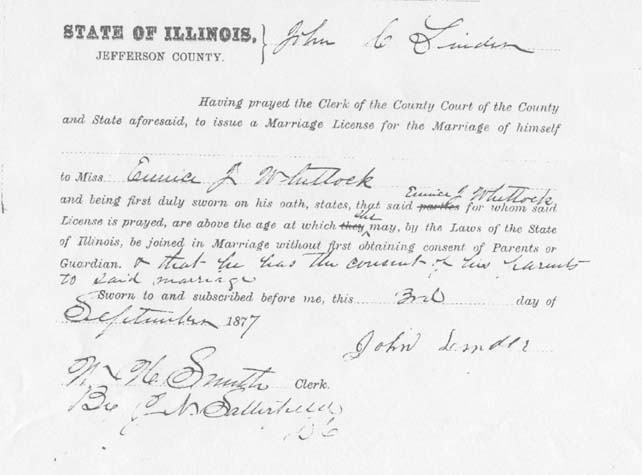 STATE OF ILLINOIS, } John C Linder
JEFFERSON COUNTY.
Having prayed the Clerk of the County Court of the County
and State aforesaid, to issue a Marriage License for the Marriage of himself
to Miss Eunice J Whitlock
Eunice J Whitlock
and being first duly sworn on his oath, states, that said parties for whom said
she
License is prayed, are above the age at which they may, by the Laws of the State
of Illinois, be joined in Marriage without first obtaining consent of Parents or
Guardian. & that he has the consent of his parents
to said marriage
Sworn to and subscribed before me, this 3rd day of
September 1877
John Linder
W H Smith Clerk.
By J N Satterfield
DC